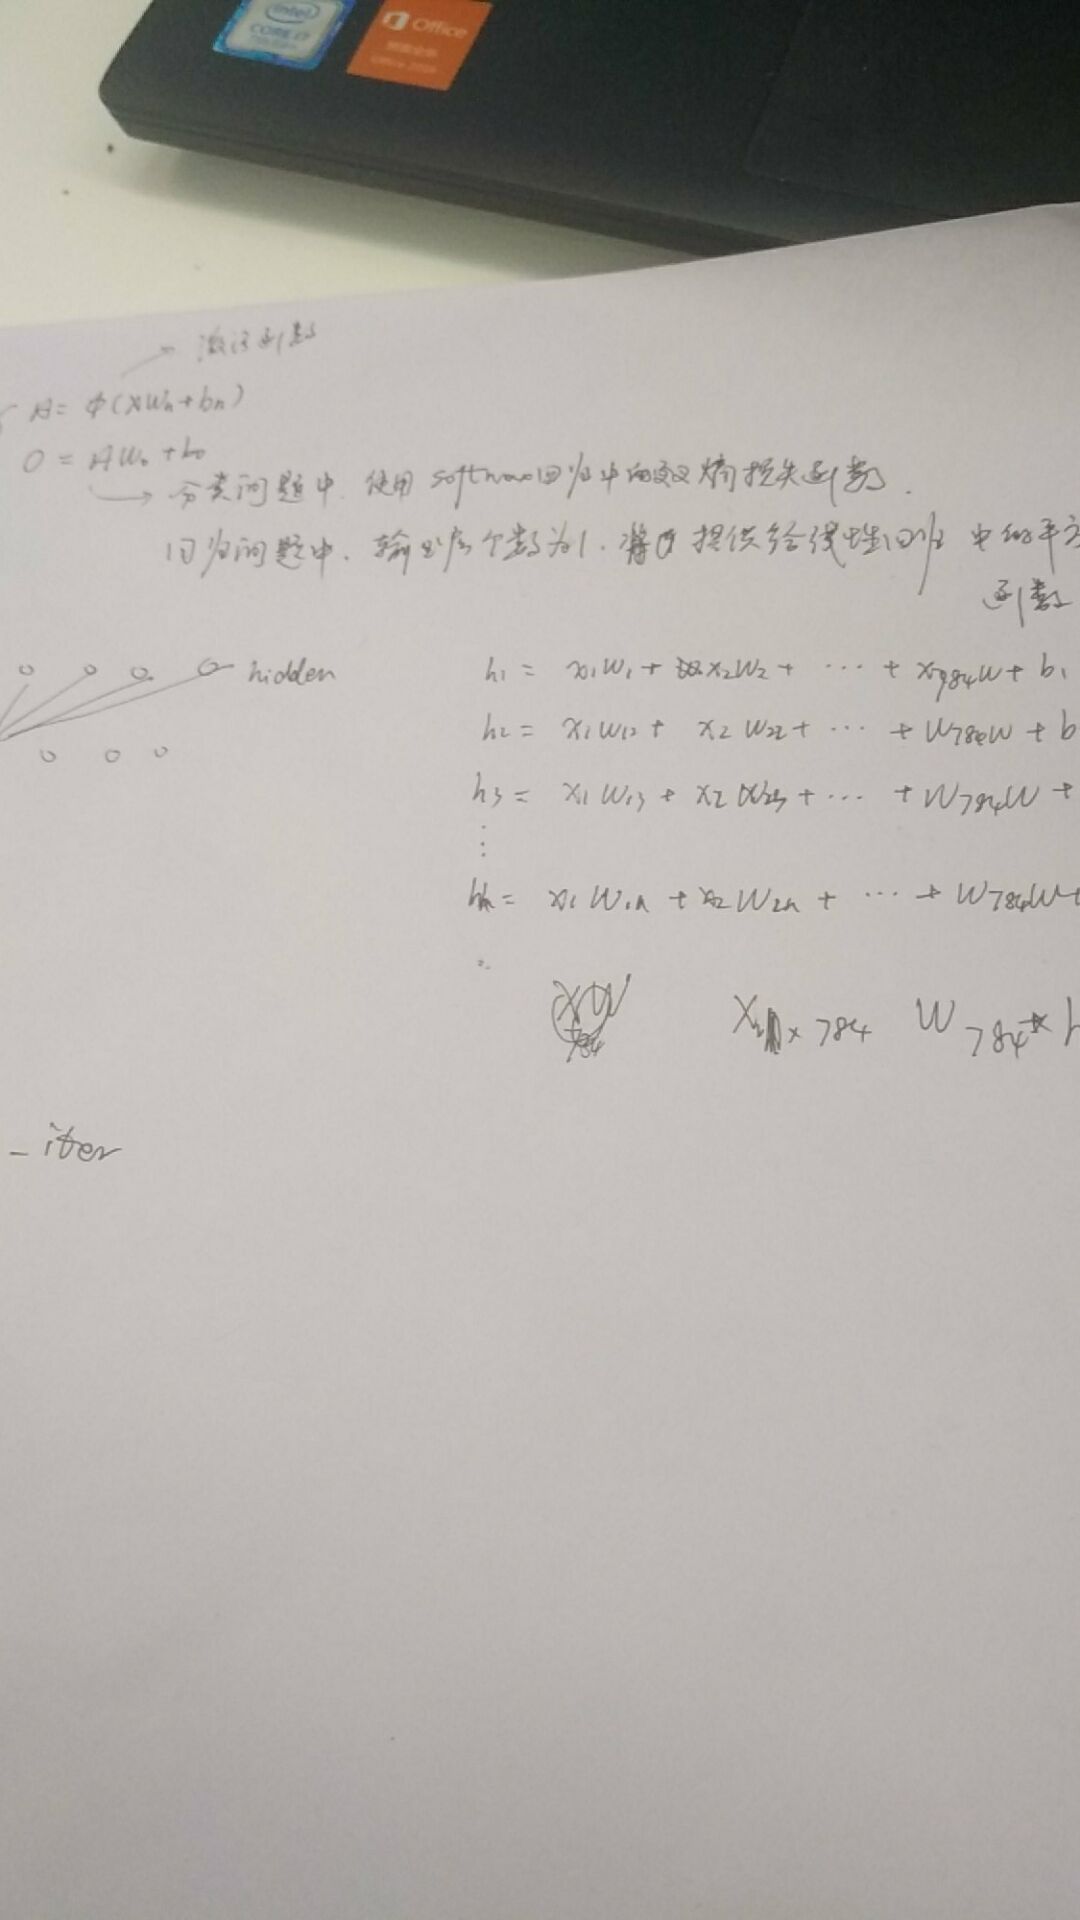 intel
CORE i7
Office
激活函数
H = φ(XWh+bh)
O = HWo+bo
分类问题中. 使用 softmax回归中的交叉熵损失函数.
回归问题中. 输出层个数为1. 将O 提供给线性回归 中的平方
函数
hidden
h1 = x1W1 + x2W2 + ··· + x784W + b1
h2 = x1W12 + x2W22 + ··· + W784W + b
h3 = x1W13 + x2W23 + ··· + W784W +
⋮
hn = x1W1n + x2W2n + ··· + W784W+
X × 784 W784*h
_iter